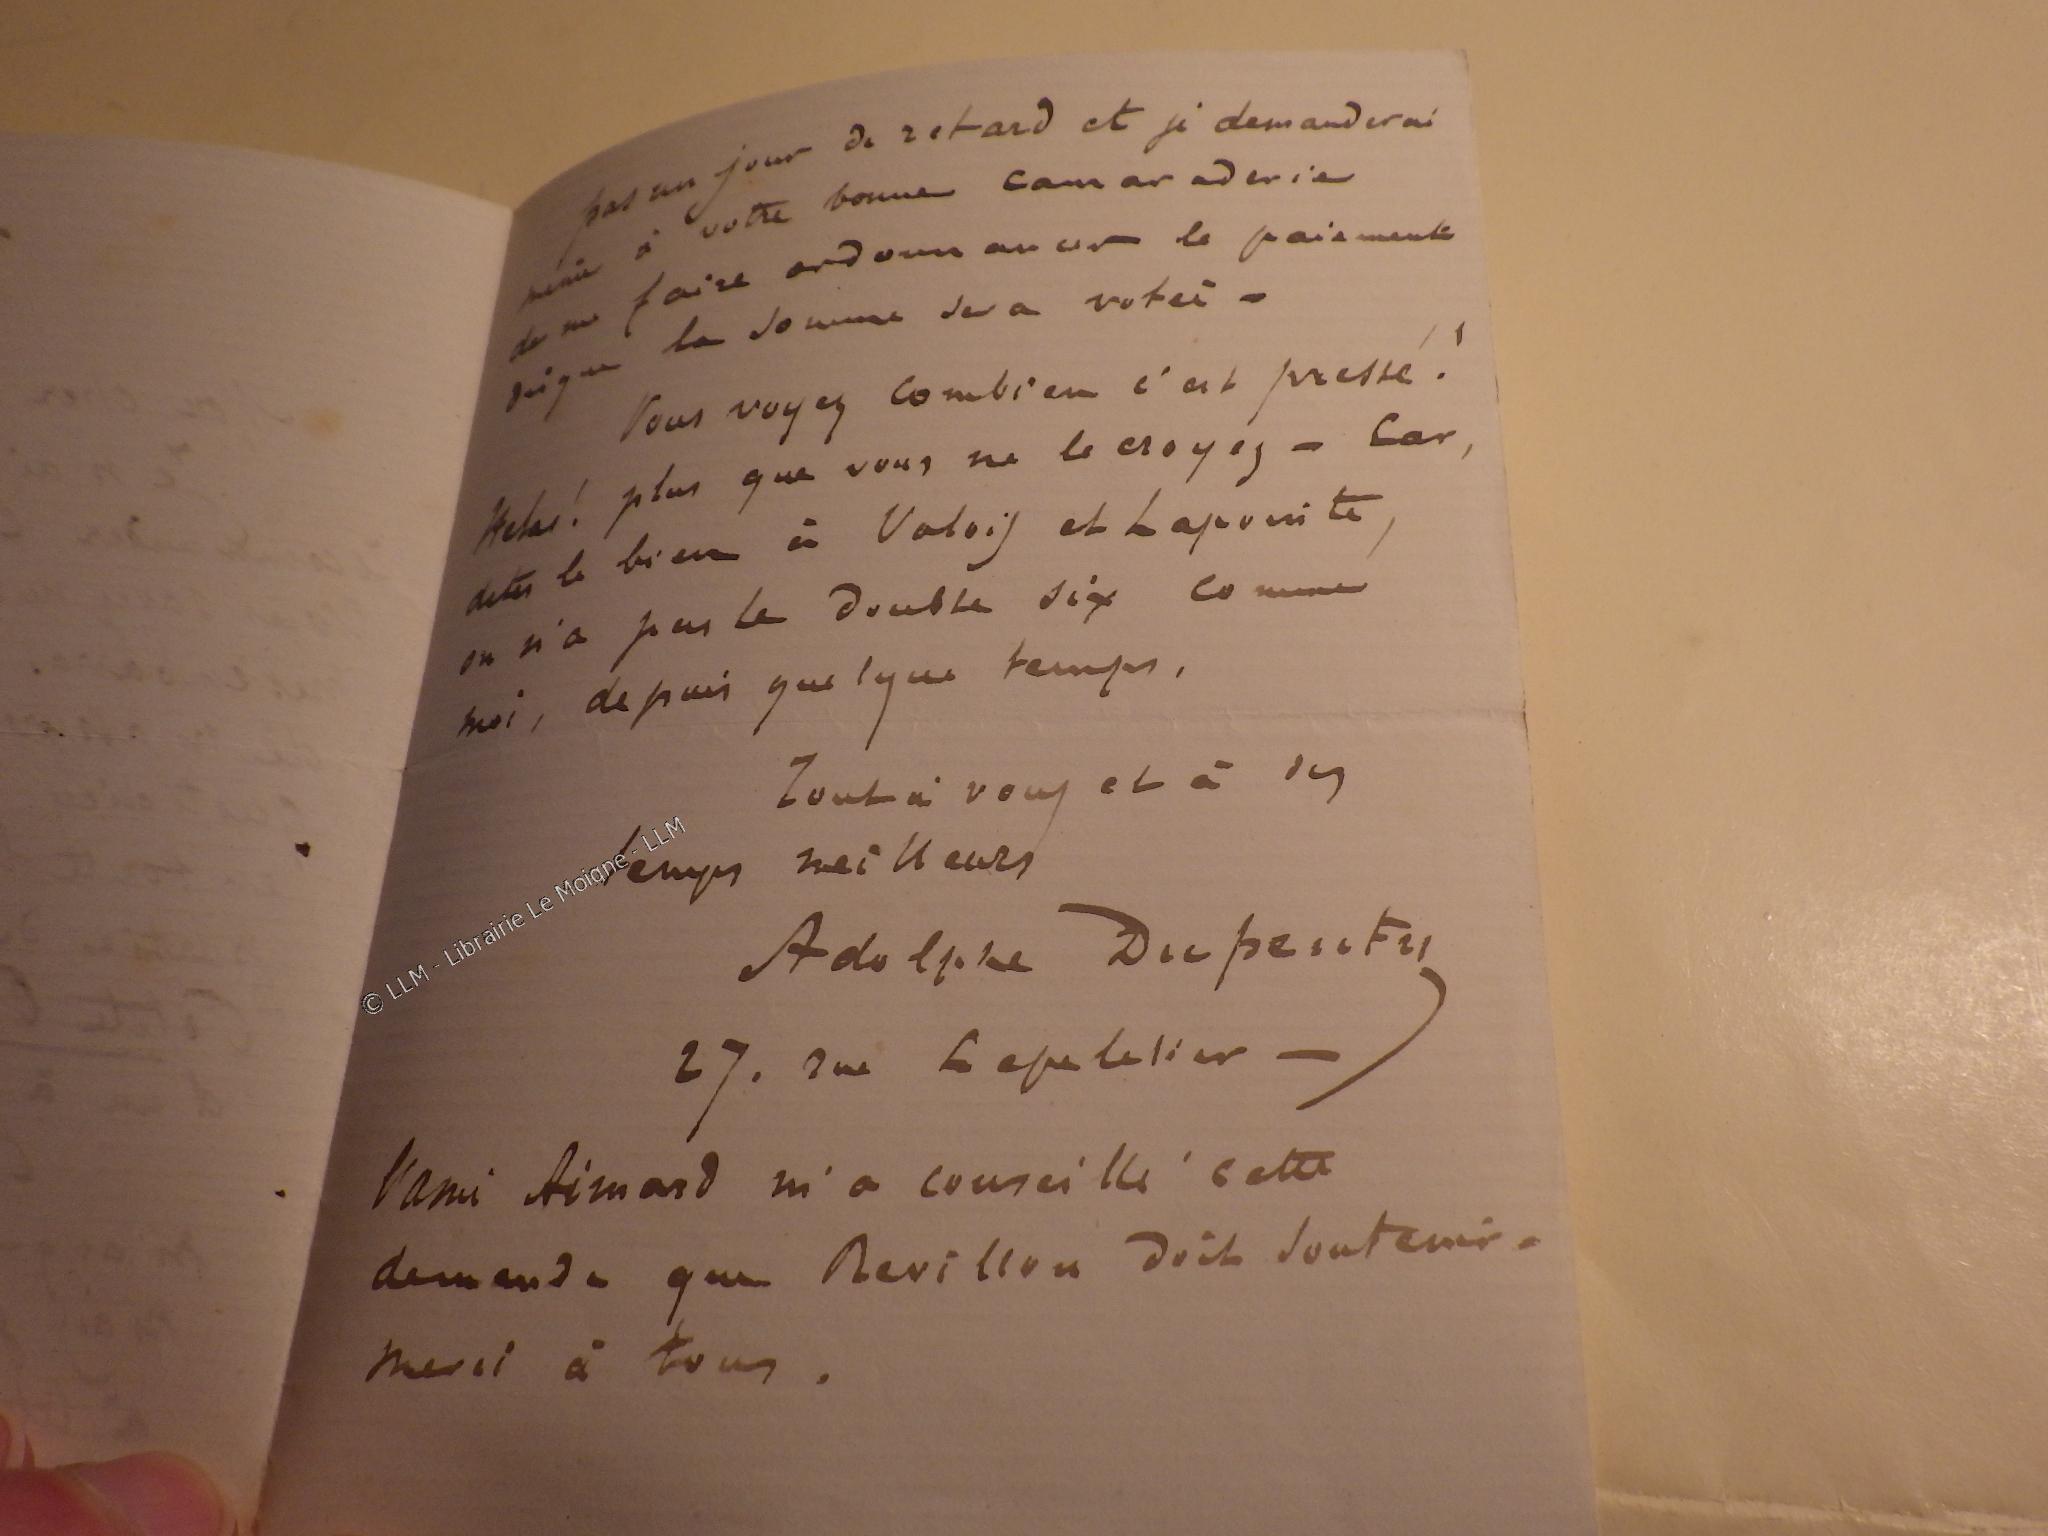 pas un jour de retard et je demanderai
même à votre bonne camaraderie
de me faire ordonnancer le paiement
dès que la somme sera votée -
Vous voyez combien c'est pressé !
Helas ! plus que vous ne le croyez - Car,
dites le bien à Valois et Lapommite,
on n'a pas le double six comme
moi, depuis quelque temps.
Tout à vous et à des
temps meilleurs
Adolphe Dupeuty
27. rue Lepeletier -
l'ami Aimard m'a conseillé cette
demande que Revillon doit soutenir -
merci à tous.
© LLM - Librairie Le Moigne - LLM